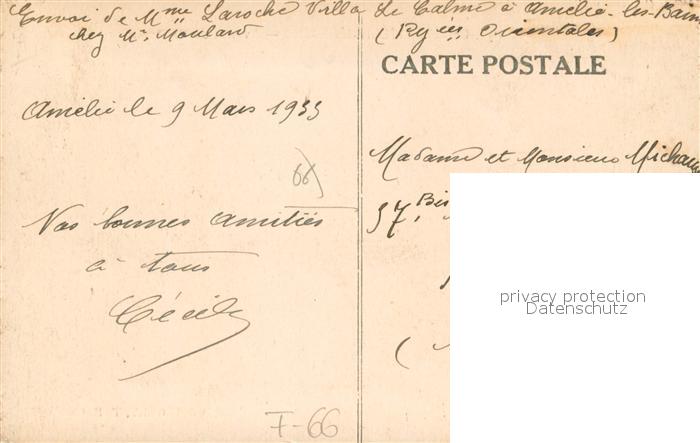 Envoi de Mme Laroche Villa Le Calme à Amélie-les-Bains
chez Mr. Moulard
(Pyées Orientales)
CARTE POSTALE
Amélie le 9 Mars 1933
Madame et Monsieur Michau
66)
37 Bis
Nos bonnes amitiés
à tous
Cécile
privacy protection
Datenschutz
F-66